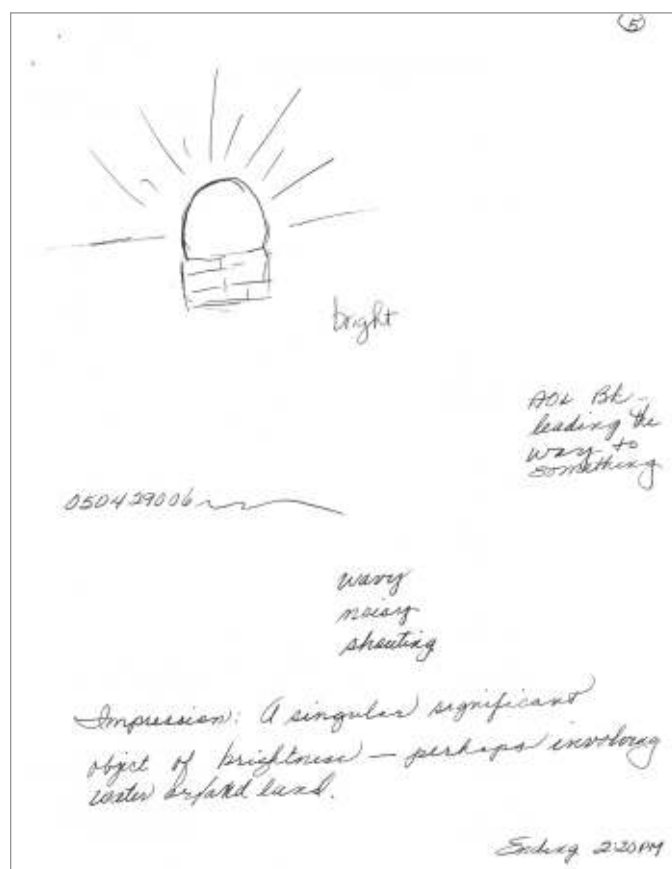 5
bright
AOL Bk –
leading the
way to
something
050429006
wavy
noisy
shouting
Impression: A singular significant
object of brightness — perhaps involving
water or/and land.
Ending 2:20PM